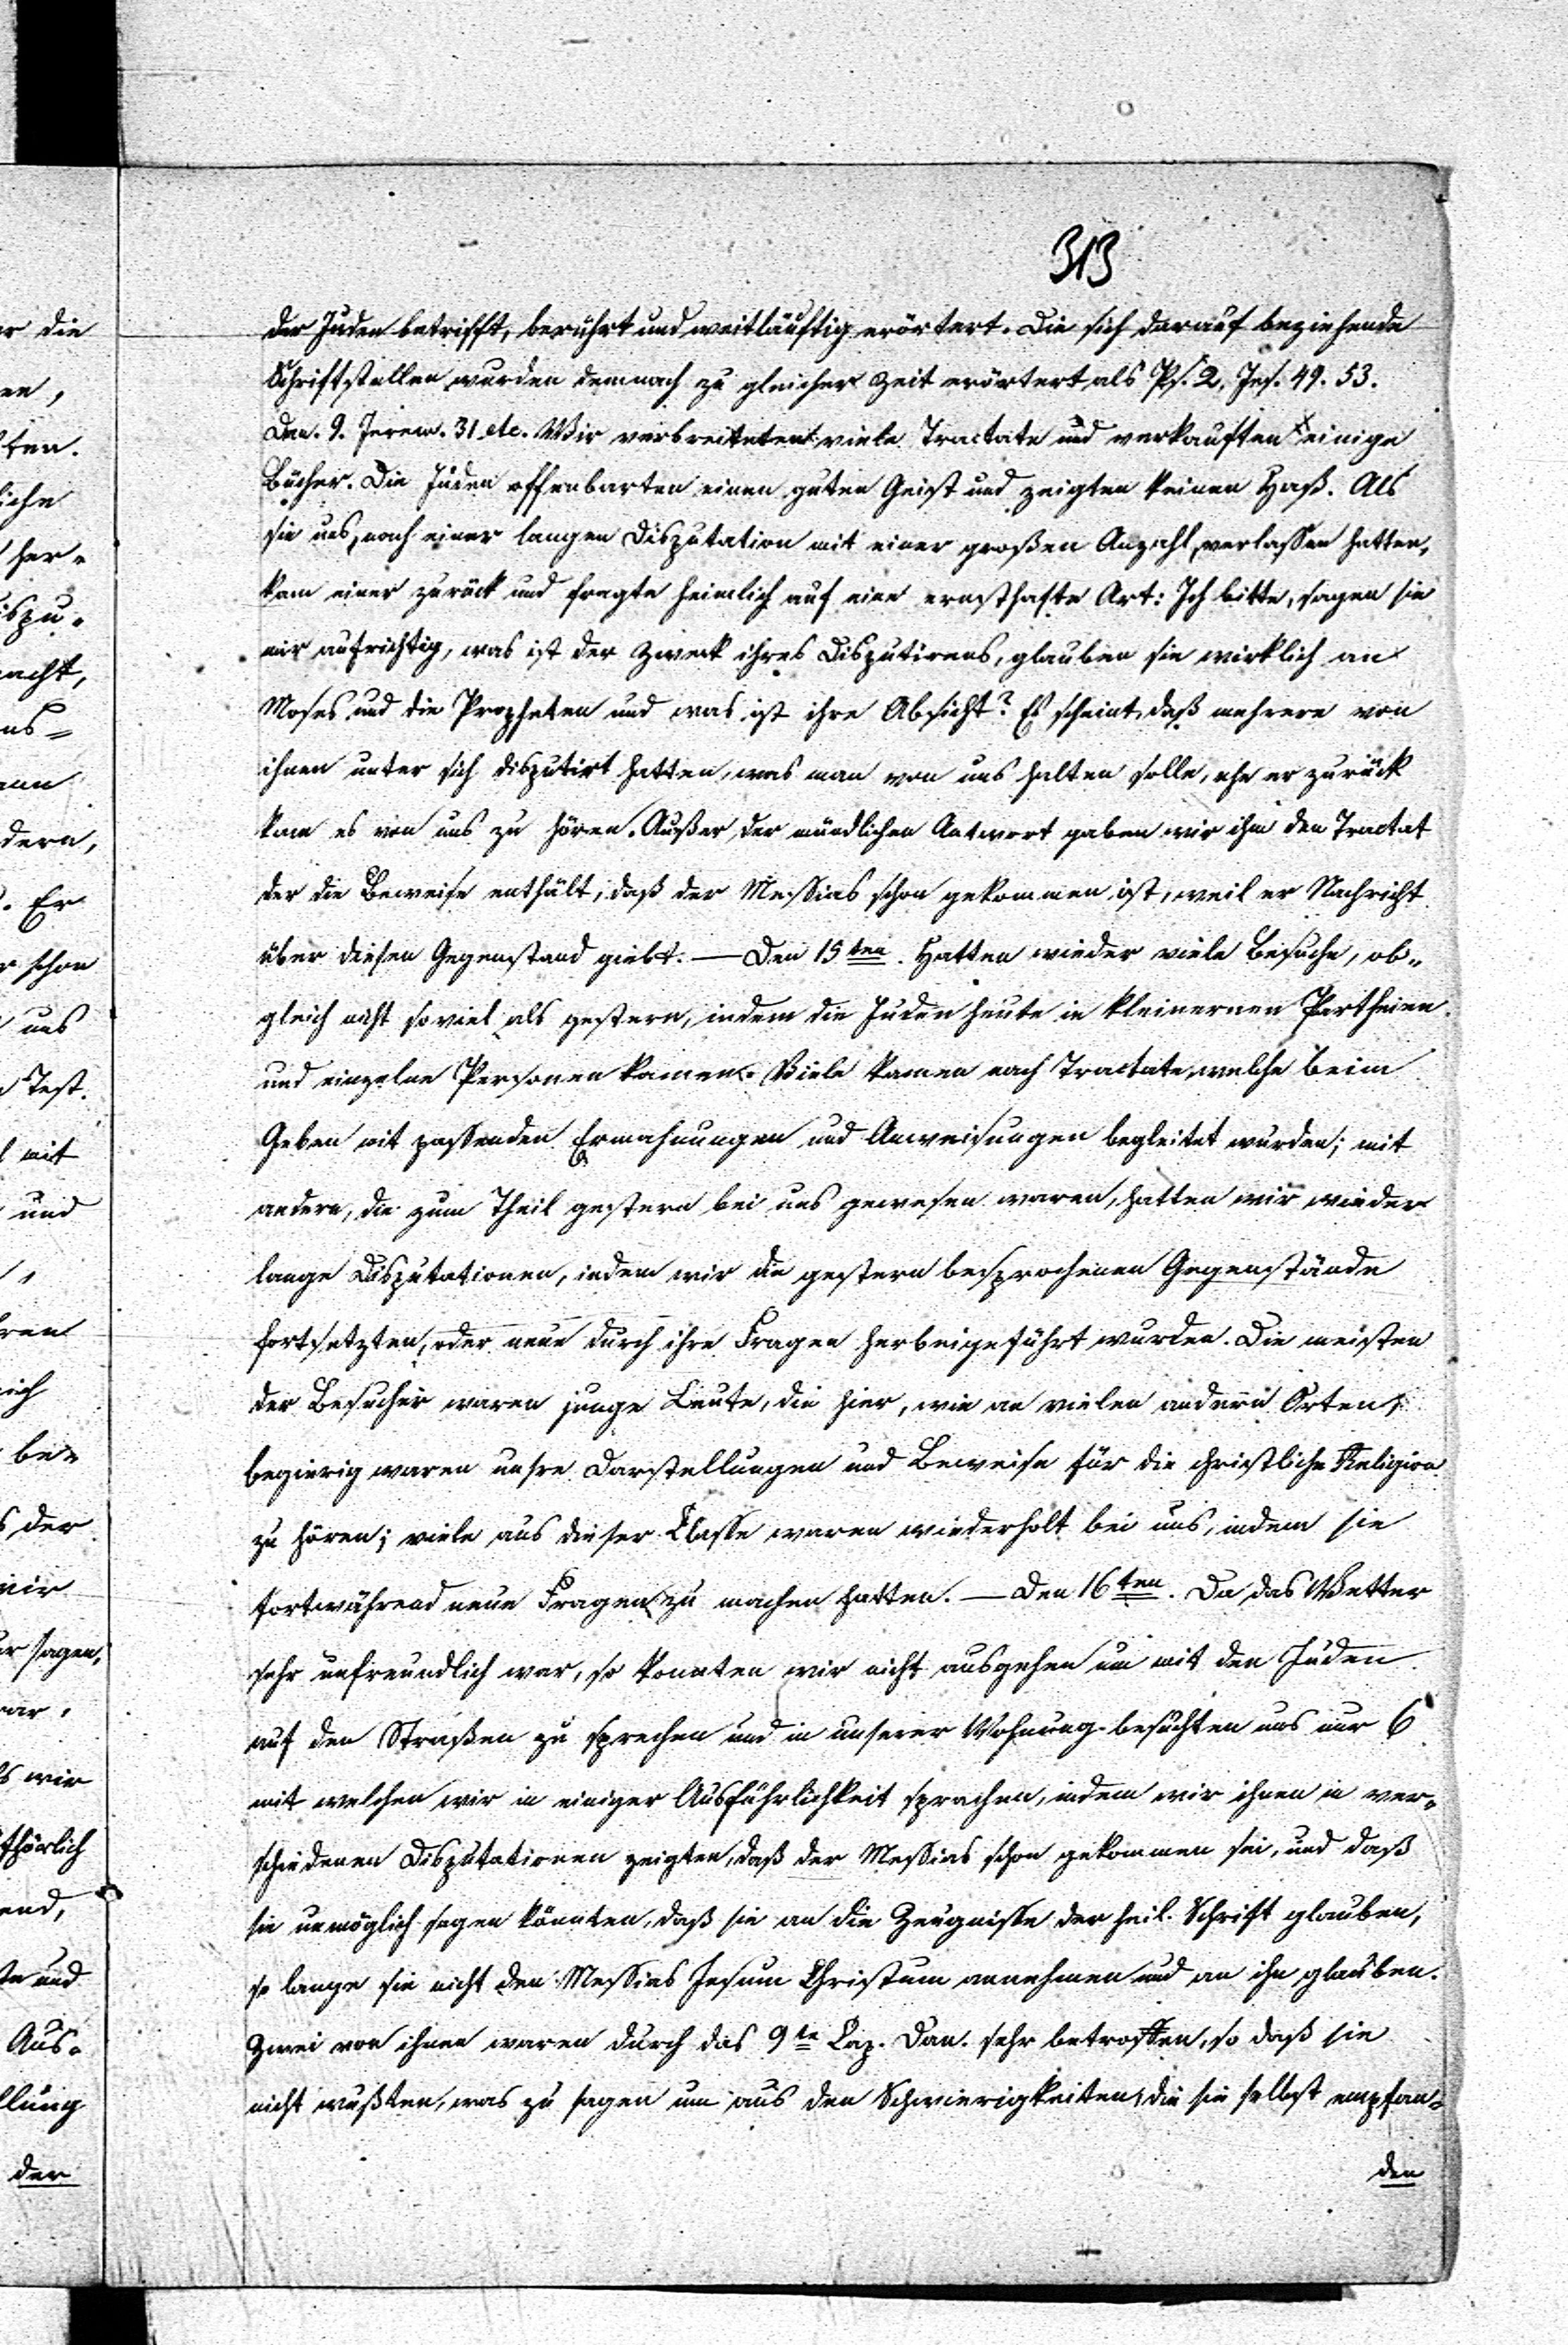 313
der Juden betrifft, berührt und weitläuftig erörtert. Die sich darauf beziehende
Schriftstellen wurden demnach zu gleicher Zeit erörtert, als Ps. 2, Jes. 49. 53.
Dan. 9. Jerem. 31. etc. Wir verbreiteten viele Tractate und verkauften einige
Bücher. Die Juden offenbarten einen guten Geist und zeigten keinen Haß. Als
sie uns, nach einer langen Disputation mit einer großen Anzahl, verlassen hatten,
kam einer zurück und fragte heimlich auf eine ernsthafte Art: Ich bitte, sagen sie
mir aufrichtig, was ist der Zweck ihres Disputirens, glauben sie wirklich an
Moses und die Propheten und was ist ihre Absicht? Es scheint, daß mehrere von
ihnen unter sich disputirt hatten, was man von uns halten solle, ehe er zurück
kam es von uns zu hören. Außer der mündlichen Antwort gaben wir ihm den Tractat
der die Beweise enthält, daß der Messias schon gekommen ist, weil er Nachricht
über diesen Gegenstand giebt. — Den 15ten. Hatten wieder viele Besuche, ob-
gleich nicht soviel als gestern, indem die Juden heute in kleinernen Partheien
und einzelne Personen kamen. Viele kamen nach Tractate, welche beim
Geben mit passenden Ermahnungen und Anweisungen begleitet wurden; mit
andern, die zum Theil gestern bei uns gewesen waren, hatten wir wieder
lange Disputationen, indem wir die gestern besprochenen Gegenstände
fortsetzten, oder neue durch ihre Fragen herbeigeführt wurden. Die meisten
der Besucher waren junge Leute, die hier, wie an vielen andern Orten,
begierig waren unsre Darstellungen und Beweise für die christliche Religion
zu hören; viele aus dieser Classe waren wiederholt bei uns, indem sie
fortwährend neue Fragen zu machen hatten. — Den 16ten. Da das Wetter
sehr unfreundlich war, so konnten wir nicht ausgehen um mit den Juden
auf den Straßen zu sprechen und in unserer Wohnung besuchten uns nur 6
mit welchen wir in einiger Ausführlichkeit sprachen, indem wir ihnen in ver-
schiedenen Disputationen zeigten, daß der Messias schon gekommen sei, und daß
sie unmöglich sagen könnten, daß sie an die Zeugnisse der heil. Schrift glauben,
so lange sie nicht den Messias Jesum Christum annehmen und an ihn glauben.
Zwei von ihnen waren durch das 9te Cap. Dan. sehr betroffen, so daß sie
nicht wußten, was zu sagen um aus den Schwierigkeiten, die sie selbst empfan-
den